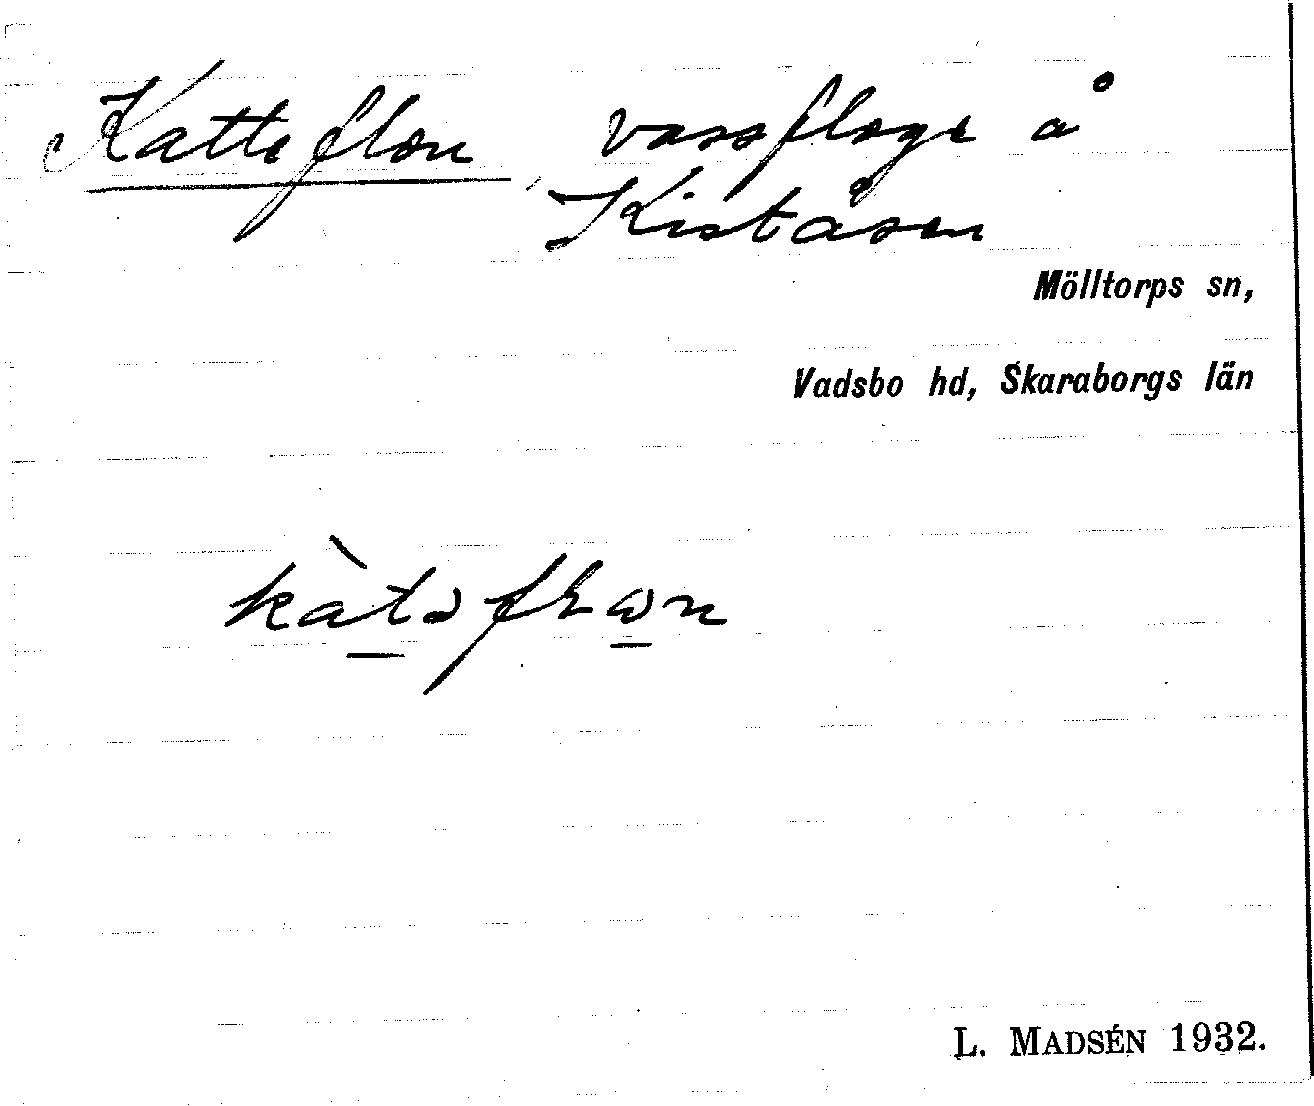 Katteflon, vassfloge å
Kiståsen
Mölltorps sn,
Vadsbo hd, Skaraborgs län
L. MADSÉN 1932.